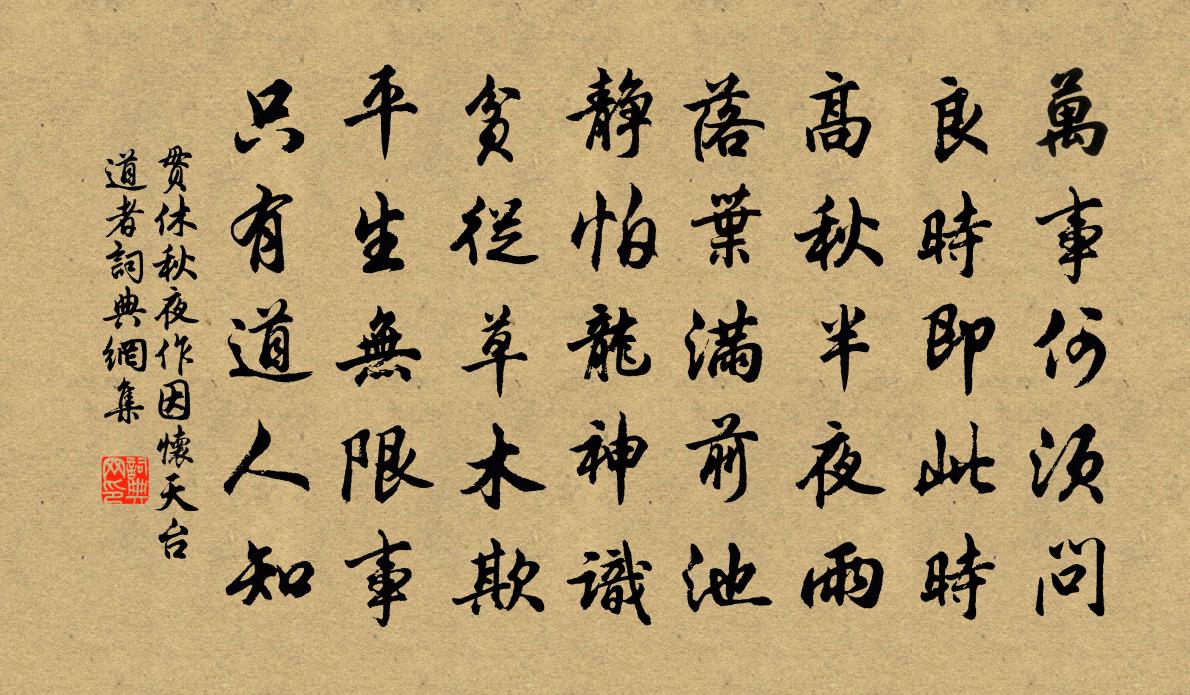 萬事何須問
良時即此時
高秋半夜雨
落葉滿前池
靜怕龍神識
貧從草木欺
平生無限事
只有道人知
貫休秋夜作因懷天台
道者詞典網集
詞典网印